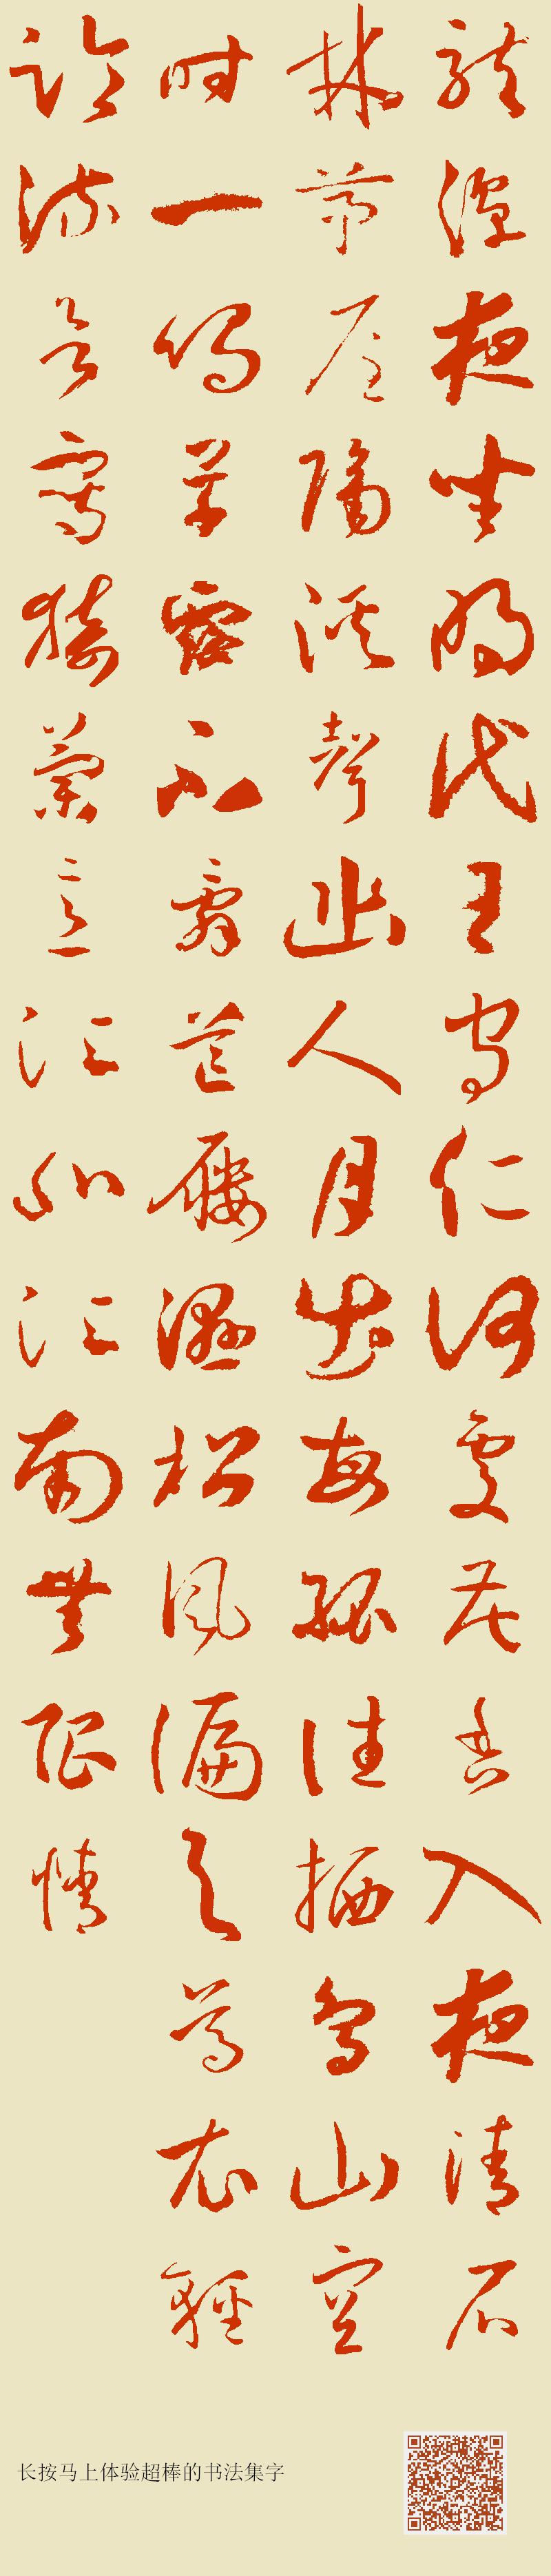 龍潭夜坐明代王守仁何處花香入夜清石
林茅屋隔溪聲幽人月出每孤往栖鳥山空
時一鳴草露不辭芒屨濕松風偏與葛衣輕
臨流欲寫猗蘭意江北江南無限情
长按马上体验超棒的书法集字